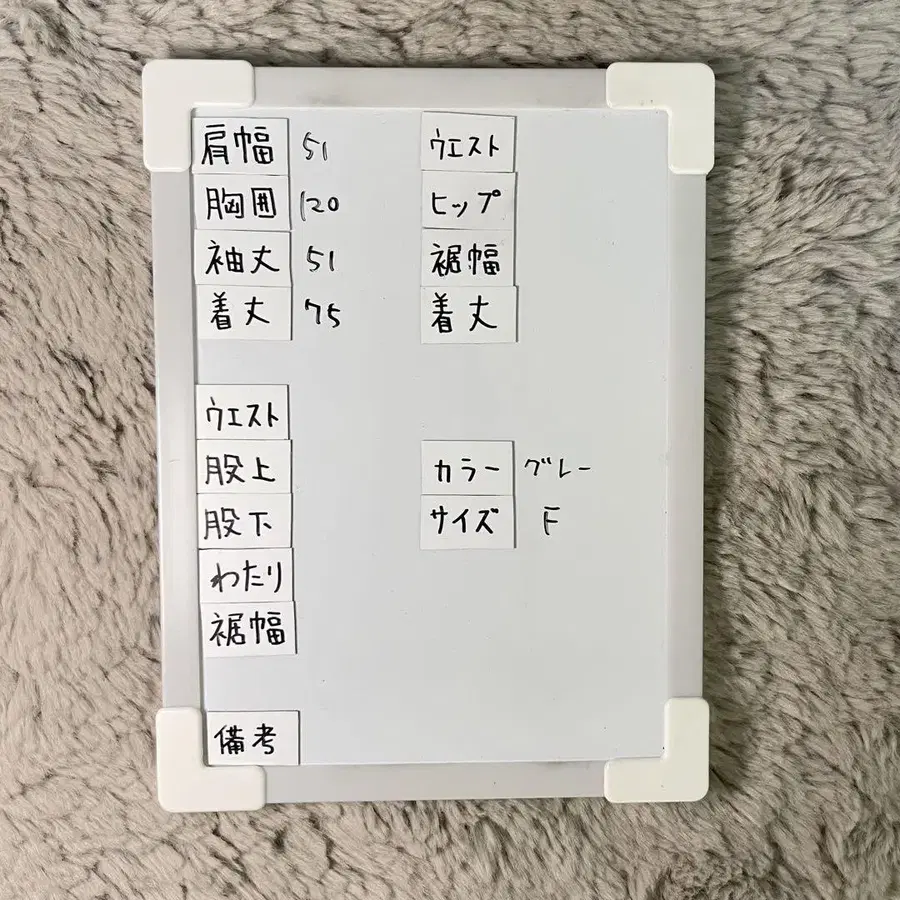 肩幅 51
胸囲 120
袖丈 51
着丈 75
ウエスト
股上
股下
わたり
裾幅
備考
ウエスト
ヒップ
裾幅
着丈
カラー グレー
サイズ F